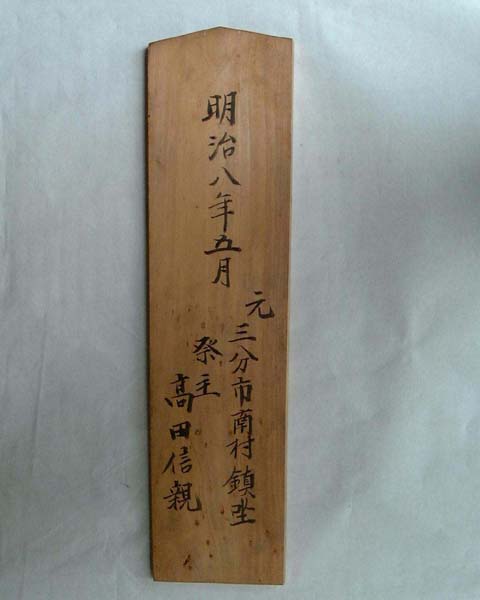 明治八年五月
元
三分市南村鎮坐
祭主
高田信親